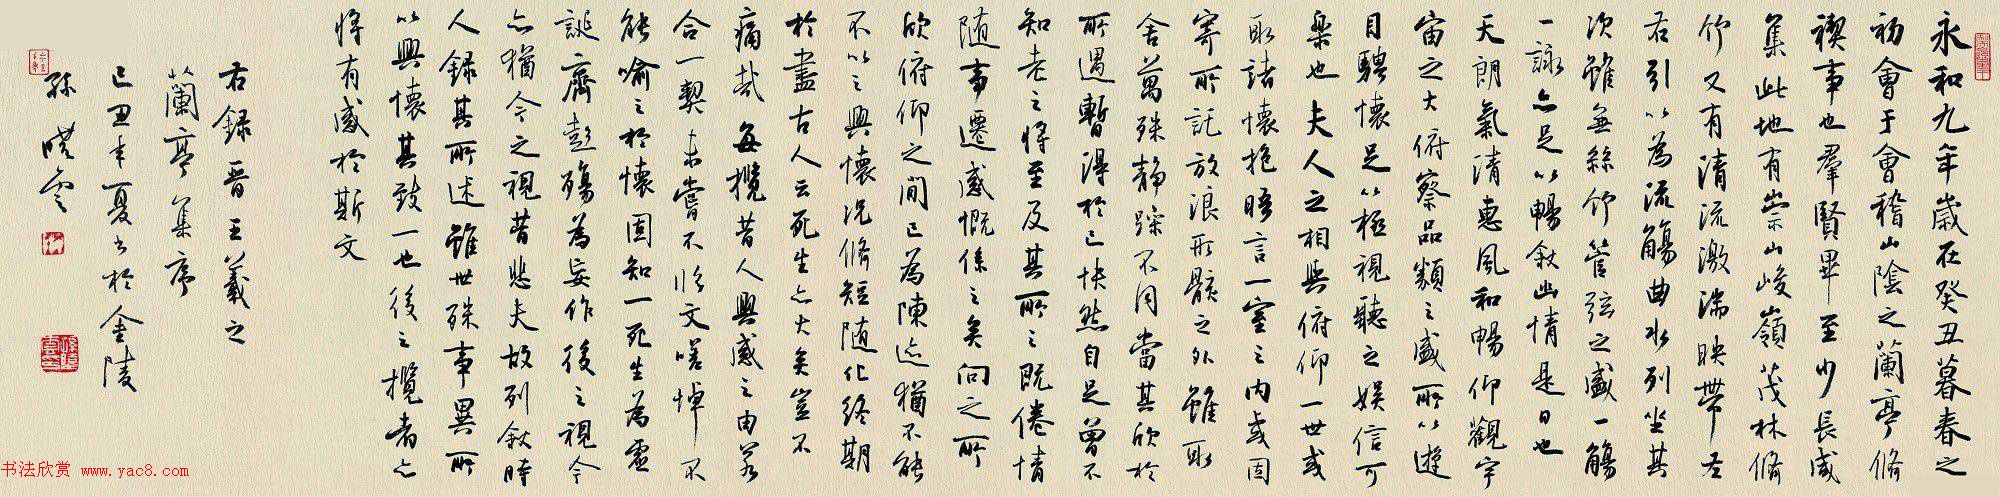 永和九年歲在癸丑暮春之
初會于會稽山陰之蘭亭脩
禊事也羣賢畢至少長咸
集此地有崇山峻嶺茂林脩
竹又有清流激湍映帶左
右引以為流觴曲水列坐其
次雖無絲竹管弦之盛一觴
一詠亦足以暢敘幽情是日也
天朗氣清惠風和暢仰觀宇
宙之大俯察品類之盛所以遊
目騁懷足以極視聽之娛信可
樂也夫人之相與俯仰一世或
取諸懷抱晤言一室之內或因
寄所託放浪形骸之外雖取
舍萬殊靜躁不同當其欣於
所遇暫得於己快然自足曾不
知老之將至及其所之既倦情
随事遷感慨係之矣向之所
欣俯仰之間已為陳迹猶不能
不以之興懷況脩短随化終期
於盡古人云死生亦大矣豈不
痛哉每攬昔人興感之由若
合一契未嘗不臨文嗟悼不
能喻之於懷固知一死生為虛
誕齊彭殤為妄作後之視今
亦猶今之視昔悲夫故列敘時
人録其所述雖世殊事異所
以興懷其致一也後之攬者亦
將有感於斯文
右録晉王羲之
蘭亭集序
己丑年夏書於金陵
孫曉雲
书法欣赏 www.yac8.com